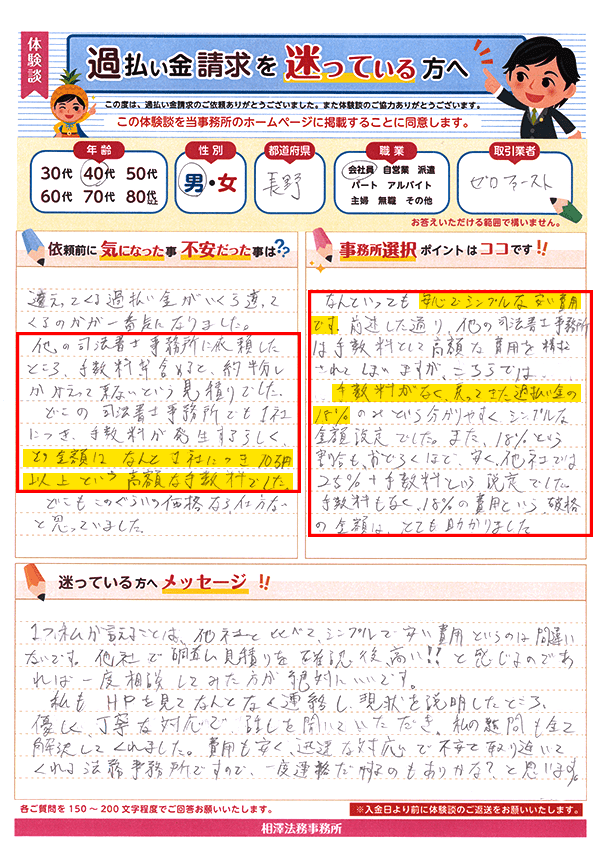 体験談
過払い金請求を迷っている方へ
この度は、過払い金請求のご依頼ありがとうございました。また体験談のご協力ありがとうございます。
この体験談を当事務所のホームページに掲載することに同意します。
年齢
30代 40代 50代
60代 70代 80代以上
性別
男・女
都道府県
長野
職業
会社員 自営業 派遣
パート アルバイト
主婦 無職 その他
取引業者
ゼロファースト
お答えいただける範囲で構いません。
依頼前に気になった事 不安だった事は??
還ってくる過払い金がいくら還って
くるのかが一番気になりました。
他の司法書士事務所に依頼した
ところ、手数料等含めると、約半分し
か還って来ないという見積りでした。
どこの司法書士事務所でも1社
につき、手数料が発生するらしく、
その金額は なんと1社につき10万円
以上という高額な手数料でした。
どこもこのぐらいの価格なら仕方ない
と思っていました。
事務所選択ポイントはココです!!
なんといっても 安心でシンプルな安い費用
です。前述した通り、他の司法書士事務所
は手数料として高額な費用を
されてしまいますが、こちらでは
手数料がなく、戻ってきた過払い金の
18%のみという分かりやすくシンプルな
金額設定でした。また、18%という
割合も、おどろくほど、安く、他社では
25%+手数料という設定でした。
手数料もなく、18%の費用という破格
の金額は、とても助かりました
迷っている方へメッセージ!!
1つ、私が言えることは、他社と比べて、シンプルで安い費用というのは間違い
ないです。他社で 見積りを確認後、高い!!と感じるのであ
れば一度相談してみた方が絶対にいいです。
私も HPを見てなんとなく連絡し、現状を説明したところ、
優しく、丁寧な対応で話しを聞いていただき、私の疑問も全て
解決してくれました。費用も安く、迅速な対応で不安を取り除いて
くれる法務事務所ですので、一度連絡だけするのもありかな?と思います。
各ご質問を150～200文字程度でご回答お願いいたします。
※入金日より前に体験談のご返送をお願いいたします。
相澤法務事務所